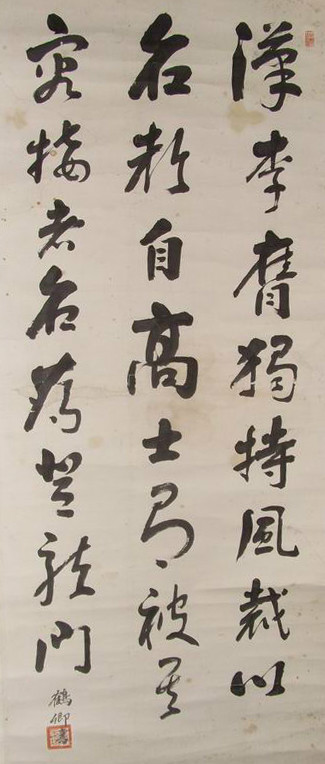 漢李膺獨持風裁以
名教自高士有被其
容接者名為登龍門
鶴卿